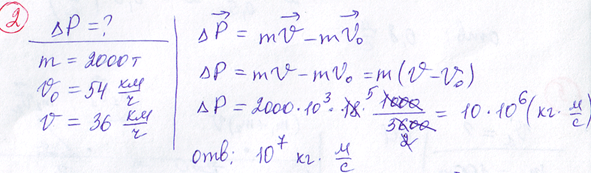 2
ΔP = ?
m = 2000т
v₀ = 54 км/ч
v = 36 км/ч
ΔP⃗ = mv⃗ − mv⃗₀
ΔP = mv − mv₀ = m(v − v₀)
ΔP = 2000·10³·18·⁵ 1000/3600 2 = 10·10⁶ (кг·м/с)
отв: 10⁷ кг·м/с